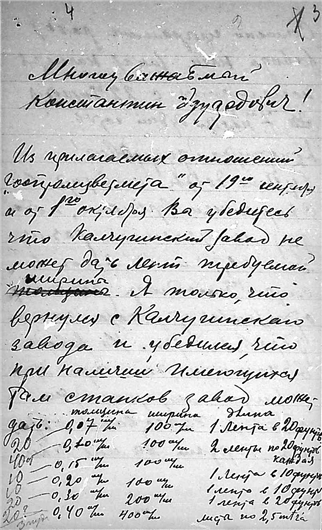 4 3
Многоуважаемый
Константин Эдуардович!
Из прилагаемых отношений
"Госпромцветмета" от 19го сентября
и от 1го октября Вы убедитесь
что Калчугинский завод не
может дать лент требуемой
ширины
толщины. Я только, что
вернулся с Калчугинскаго
завода и убедился, что
при наличии имеющихся
там станков завод может
дать: толщина ширина длина
0,07 m/m 100 m/m 1 лента в 20 фунтов
20 0,10 m/m 100 m/m 2 ленты по 20 фунтов
40 каждая
0,15 m/m 100 m/m
10 0,20 m/m 100 m/m 1 лента в 10 фунтов
10 0,30 m/m 200 m/m 1 лента в 10 фунтов
0,40 m/m 400 m/m по 2,5